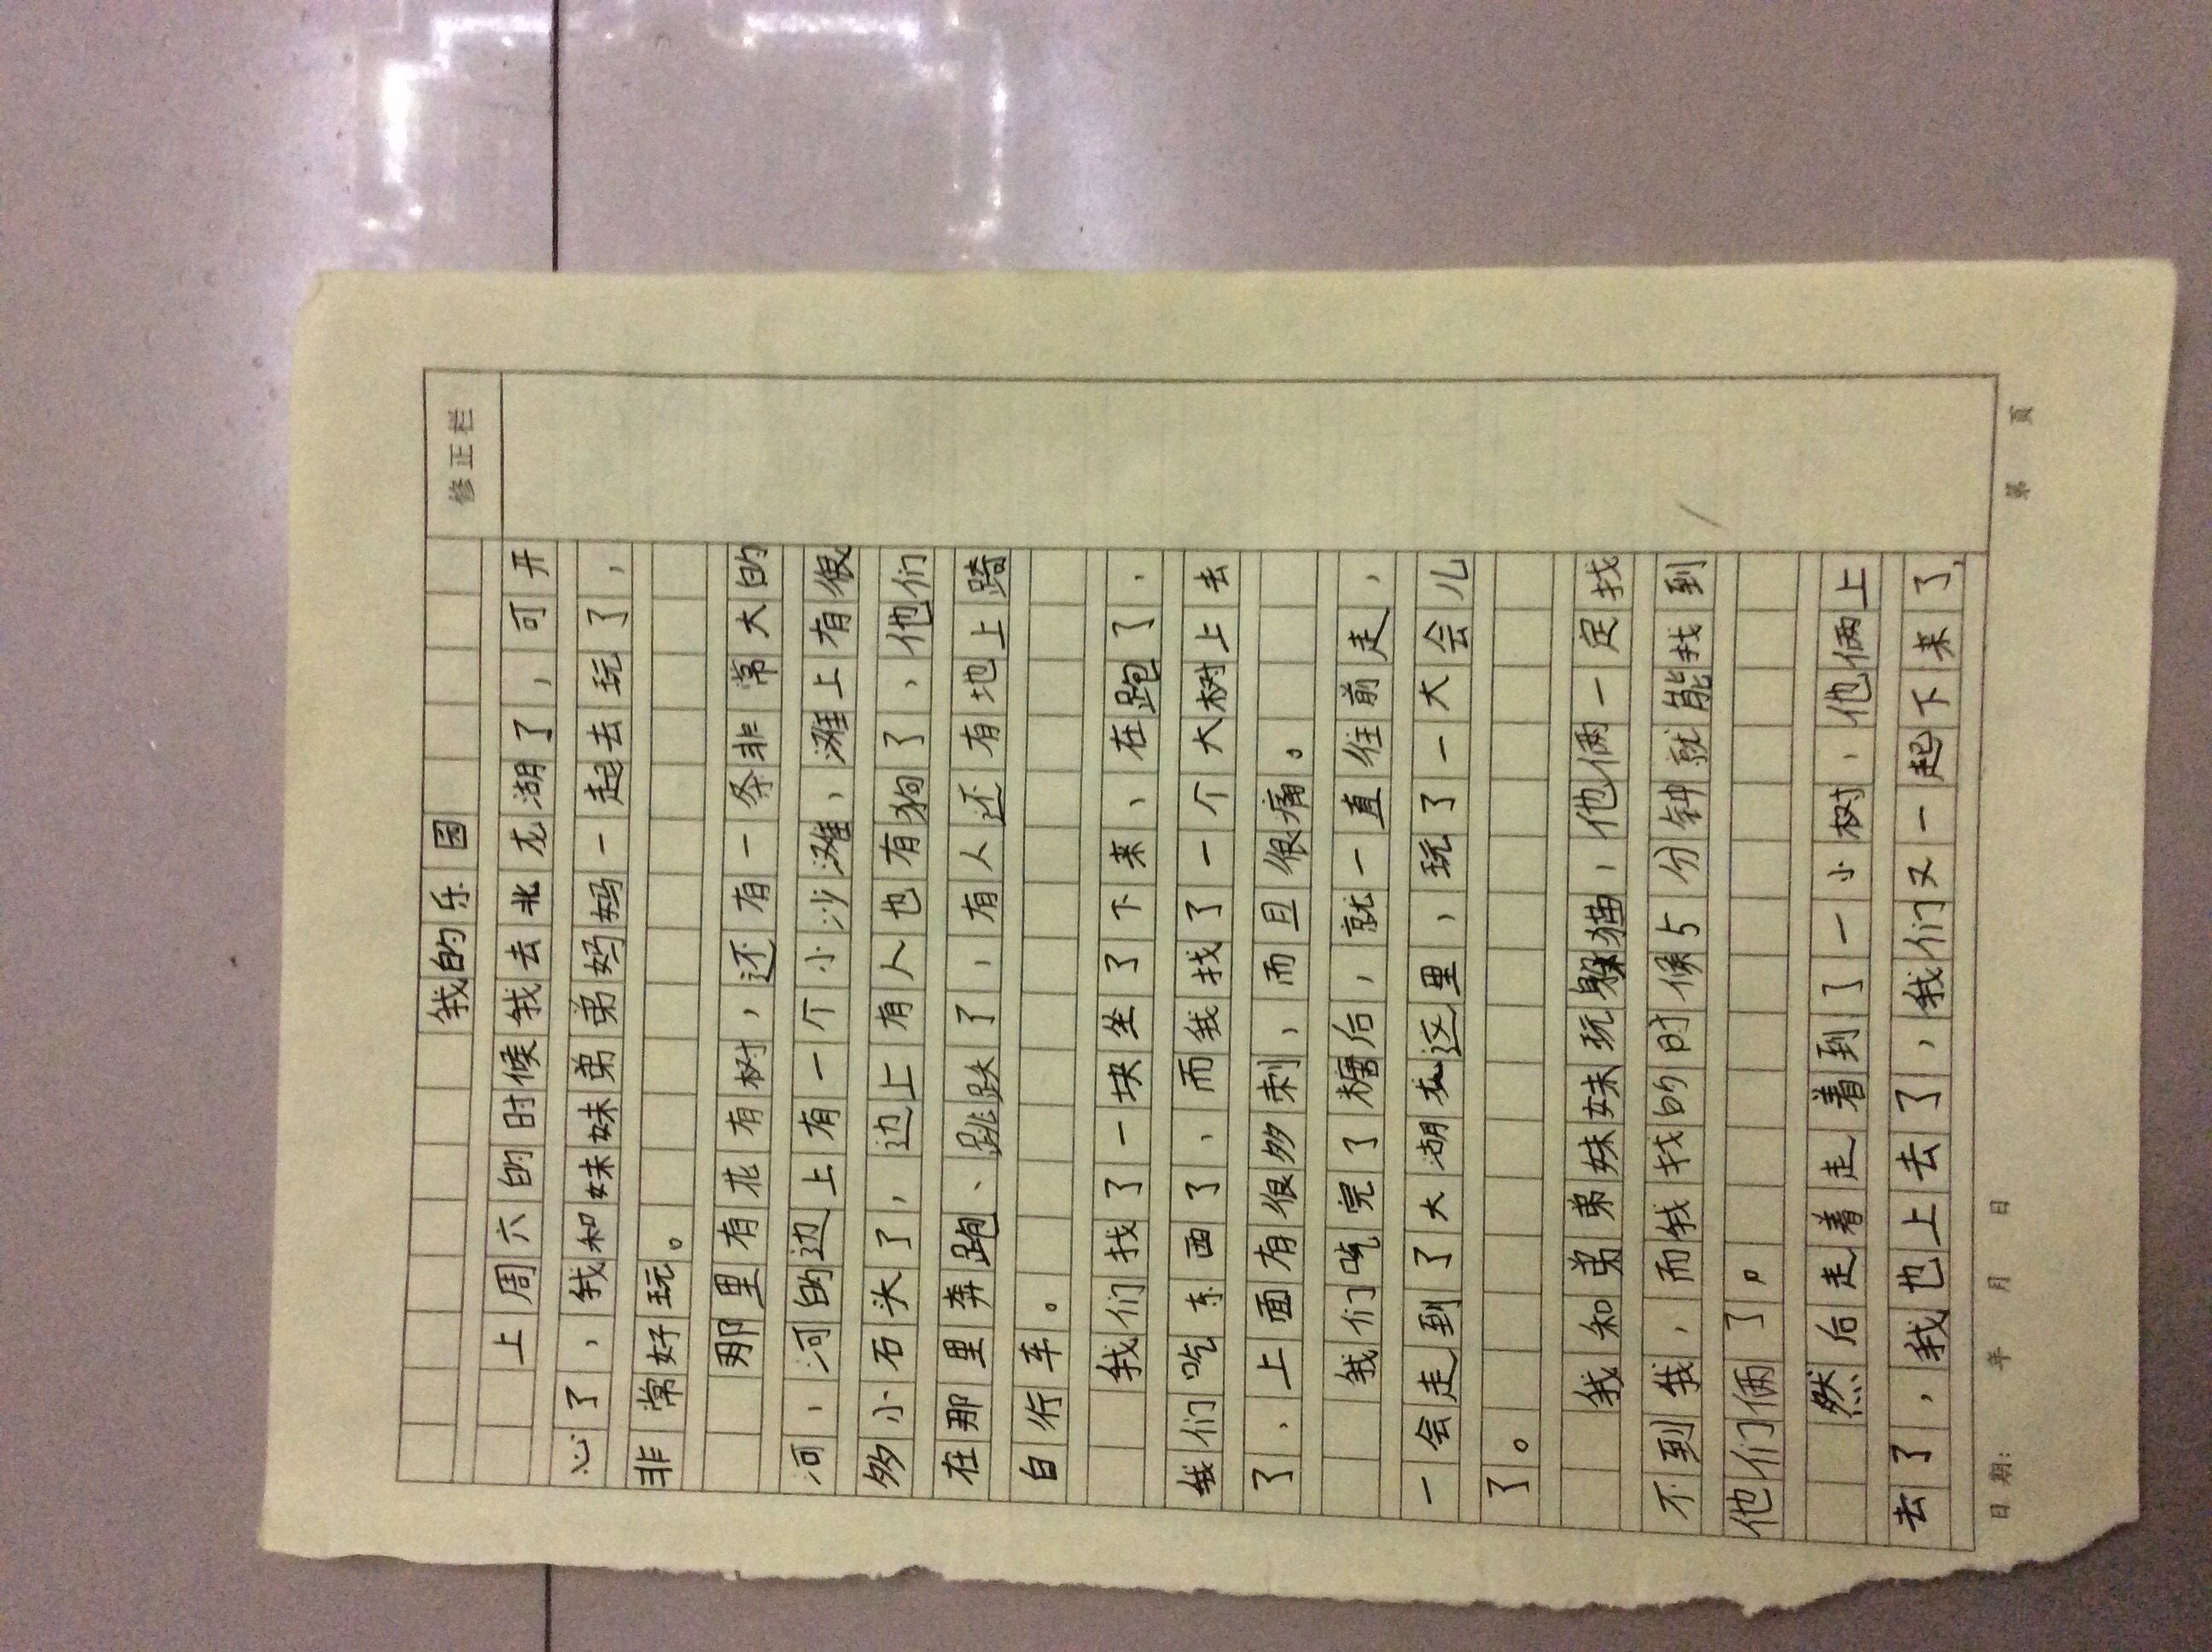 修正栏
我的乐园
上周六的时候我去北龙湖了，可开
心了，我和妹妹弟弟妈妈一起去玩了，
非常好玩。
那里有花有树，还有一条非常大的
河，河的边上有一个小沙滩，滩上有很
多小石头了，边上有人也有狗了，他们
在那里奔跑、跳跃了，有人还有地上跨
自行车。
我们找了一块坐了下来，在跑了，
我们吃东西了，而我找了一个大树上去
了，上面有很多刺，而且很痛。
我们吃完了糖后，就一直往前走，
一会走到了大湖在这里，玩了一大会儿
了。
我和弟弟妹妹玩躲猫，他俩一定找
不到我，而我找的时候5分钟就能找到
他们俩了。
然后走着走着到了一小树，他俩上
去了，我也上去了，我们又一起下来了，
日期： 年 月 日 第 页